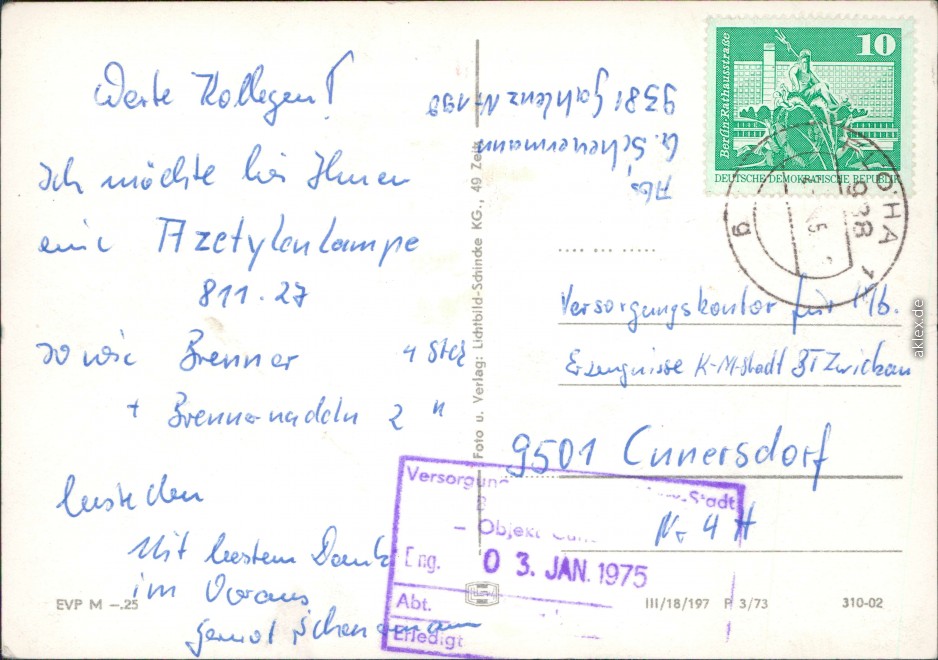 Werte Kollegen!
Ich möchte bei Ihnen
eine Azetylenlampe
811.27
sowie Brenner 4 Stck
+ Brennernadeln 2 "
bestellen
Mit bestem Dank
im Voraus
Gernot Scheuermann
EVP M –.25
Foto u. Verlag: Lichtbild-Schincke KG., 49 Zeitz
Abs.
G. Scheuermann
9381 Gahlenz Nr 190
10
Berlin-Rathausstraße
DEUTSCHE DEMOKRATISCHE REPUBLIK
FLÖHA 1
938
g
Versorgungskontor für Mb.
Erzeugnisse K-M-Stadt BT Zwickau
9501 Cunersdorf
Nr 4 H
Versorgun
-Stadt
– Objekt
Eng. 0 3. JAN. 1975
Abt.
Erledigt
III/18/197 P 3/73 310-02
aklex.de